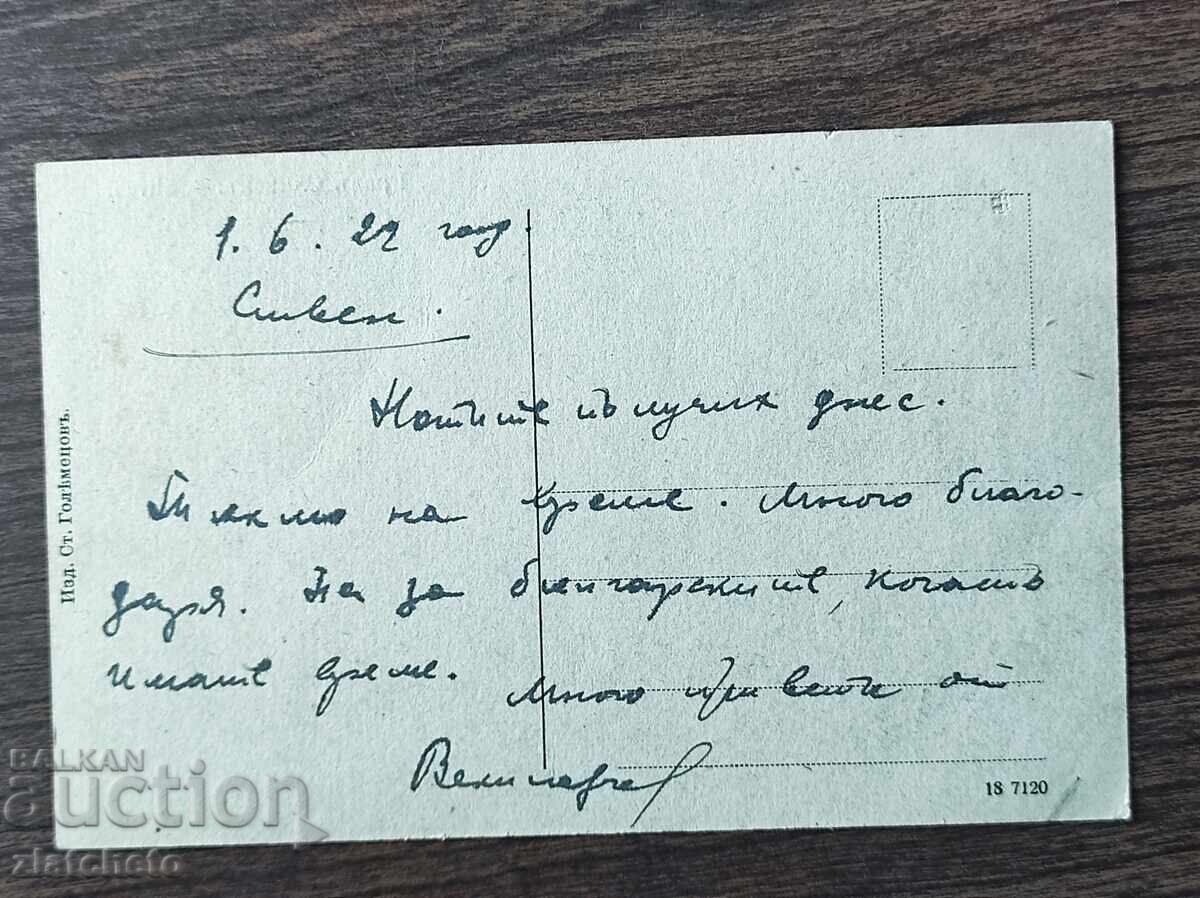 1. 6. 22 год.
Сливен.
Нотите получих днес.
Тъкмо на време. Много благо-
даря. На за българските, когато
имате време.
Много привети от
Изд. Ст. Голѣмецовъ.
18 7120
BALKAN
auction
zlatcheto